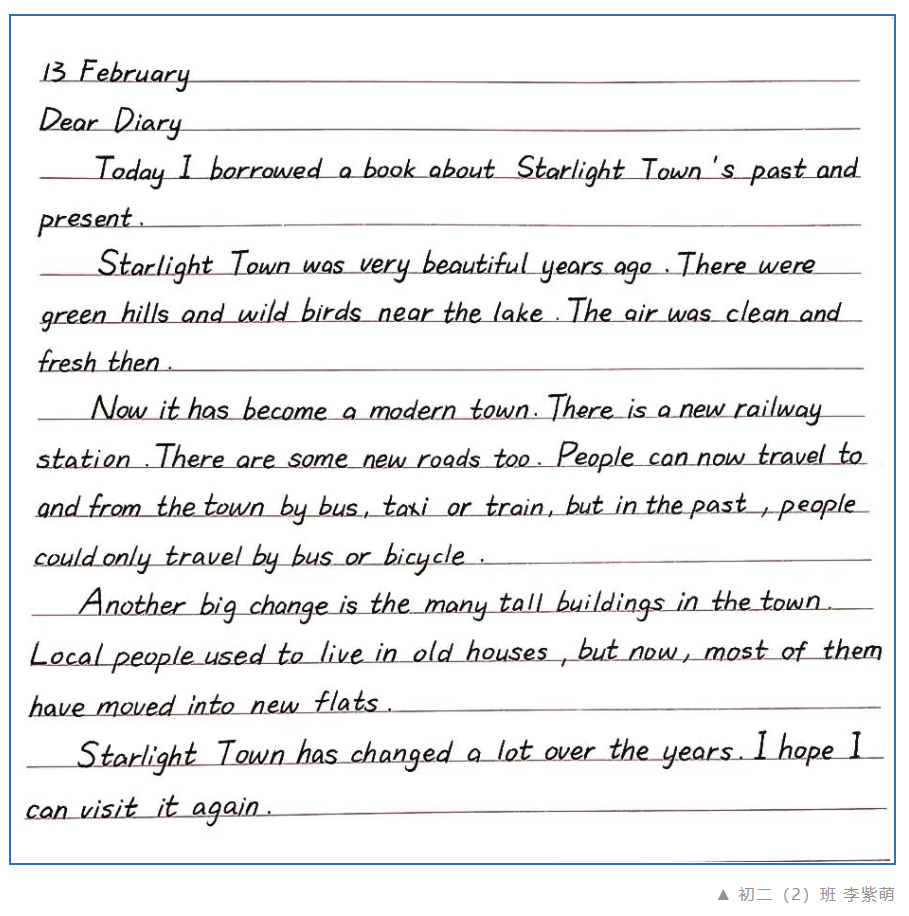 13 February
Dear Diary
Today I borrowed a book about Starlight Town's past and
present.
Starlight Town was very beautiful years ago. There were
green hills and wild birds near the lake. The air was clean and
fresh then.
Now it has become a modern town. There is a new railway
station. There are some new roads too. People can now travel to
and from the town by bus, taxi or train, but in the past, people
could only travel by bus or bicycle.
Another big change is the many tall buildings in the town.
Local people used to live in old houses, but now, most of them
have moved into new flats.
Starlight Town has changed a lot over the years. I hope I
can visit it again.
▲ 初二（2）班 李紫萌